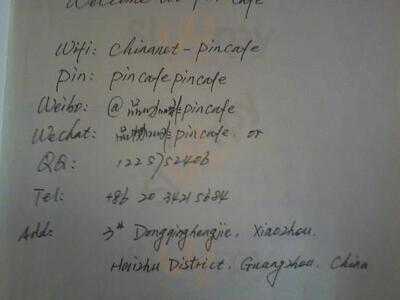 Welcome to pin cafe
Wifi: Chinanet-pincafe
pin: pincafepincafe
Weibo: @品咖啡pincafe
Wechat: pincafe. or
QQ:
Tel: +86 20 34215684
Add: 3# Dongqinghengjie, Xiaozhou,
Haizhu District, Guangzhou, China